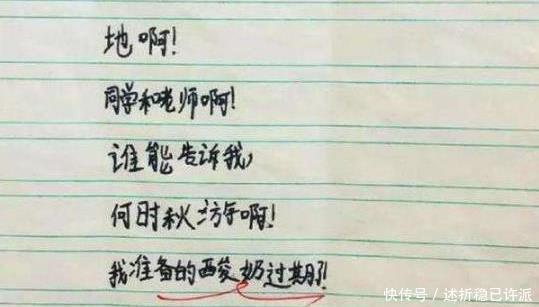 地啊!
同学和老师啊!
谁能告诉我,
何时秋游啊!
我准备的酸奶过期了!
快传号 / 述折稳已许派